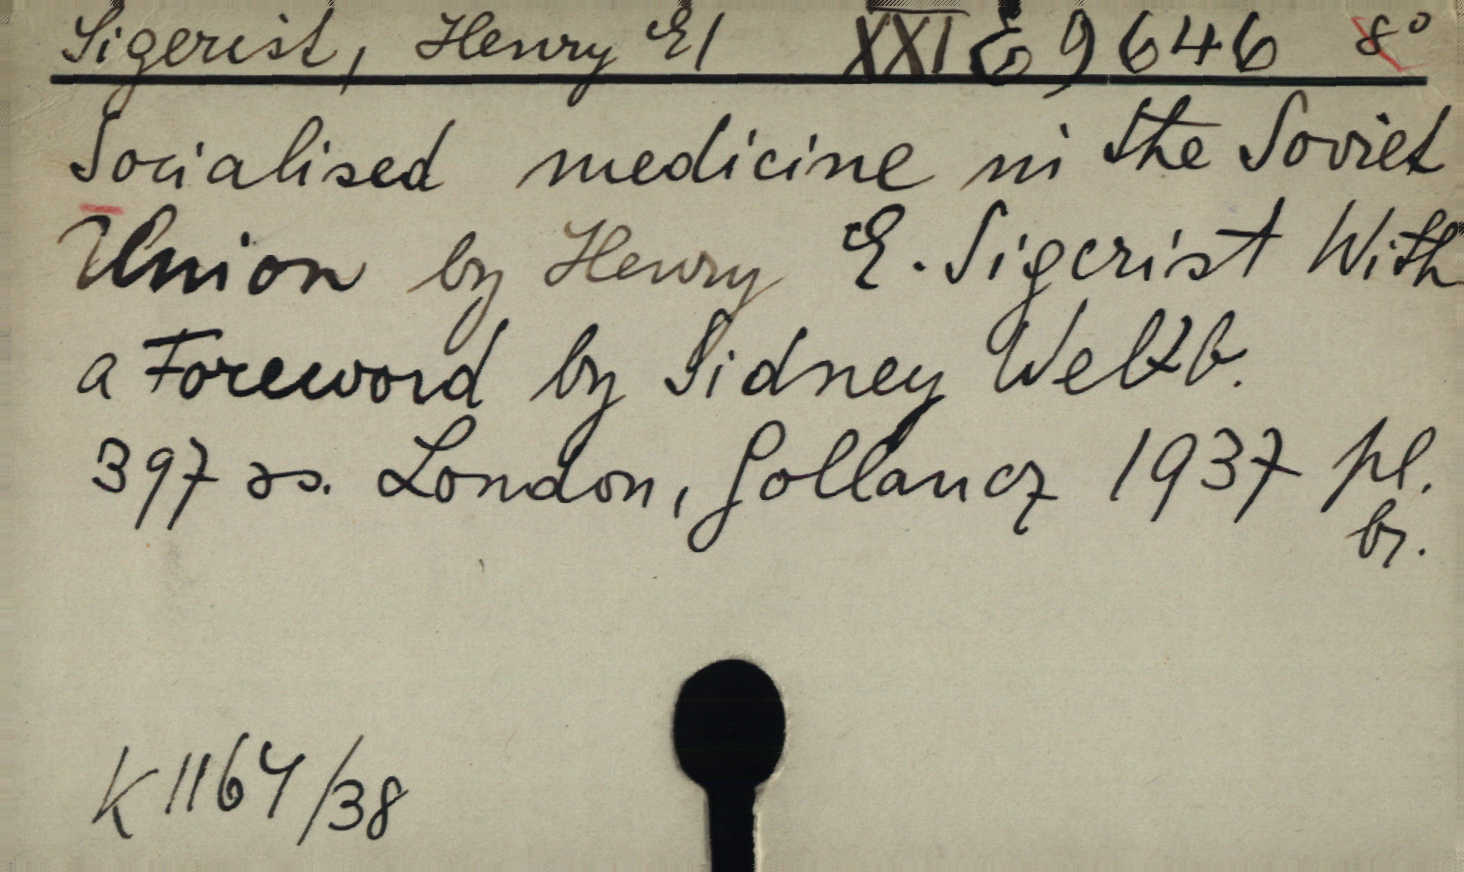 Sigerist, Henry E/ XXI E 9646 8°
Socialised medicine in the Soviet
Union by Henry E. Sigerist With
a Foreword by Sidney
397 ss. London, Gollancz 1937 pl.
br.
K 1164/38